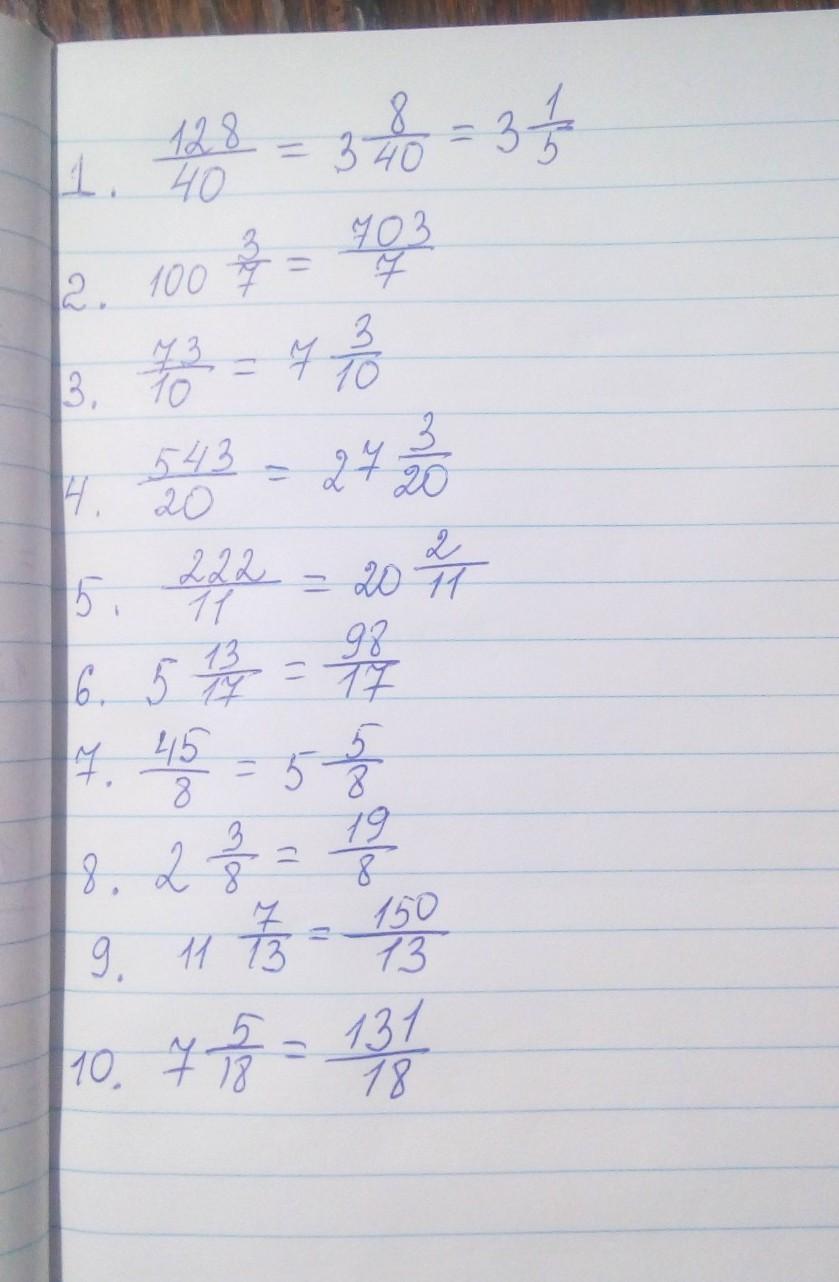 1. 128/40 = 3 8/40 = 3 1/5
2. 100 3/7 = 703/7
3. 73/10 = 7 3/10
4. 543/20 = 27 3/20
5. 222/11 = 20 2/11
6. 5 13/17 = 98/17
7. 45/8 = 5 5/8
8. 2 3/8 = 19/8
9. 11 7/13 = 150/13
10. 7 5/18 = 131/18